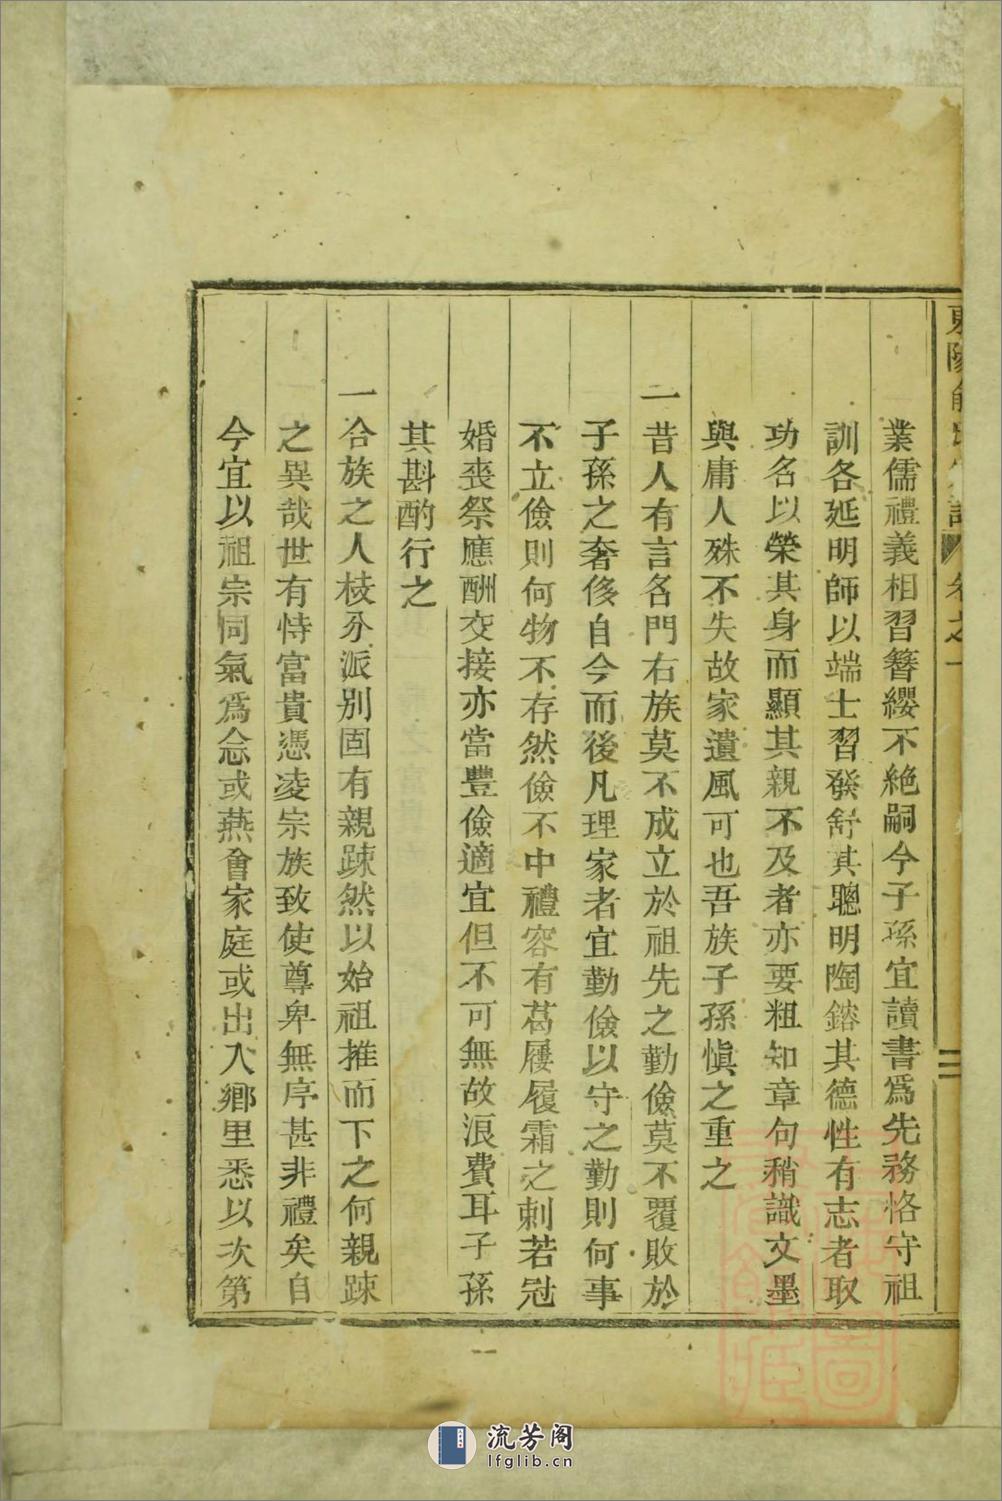 業儒禮義相習簪纓不絶嗣今子孫宜讀書爲先務恪守祖
訓各延明師以端士習發舒其聰明陶鎔其德性有志者取
功名以榮其身而顯其親不及者亦要粗知章句稍識文墨
與庸人殊不失故家遺風可也吾族子孫愼之重之
一昔人有言各門右族莫不成立於祖先之勤儉莫不覆敗於
子孫之奢侈自今而後凡理家者宜勤儉以守之勤則何事
不立儉則何物不存然儉不中禮容有葛屨履霜之刺若冠
婚喪祭應酬交接亦當豐儉適宜但不可無故浪費耳子孫
其斟酌行之
一合族之人枝分派別固有親踈然以始祖推而下之何親踈
之異哉世有恃富貴憑凌宗族致使尊卑無序甚非禮矣自
今宜以祖宗同氣爲念或燕會家庭或出入鄕里悉以次第
卷之一
三
流芳阁
lfglib.cn